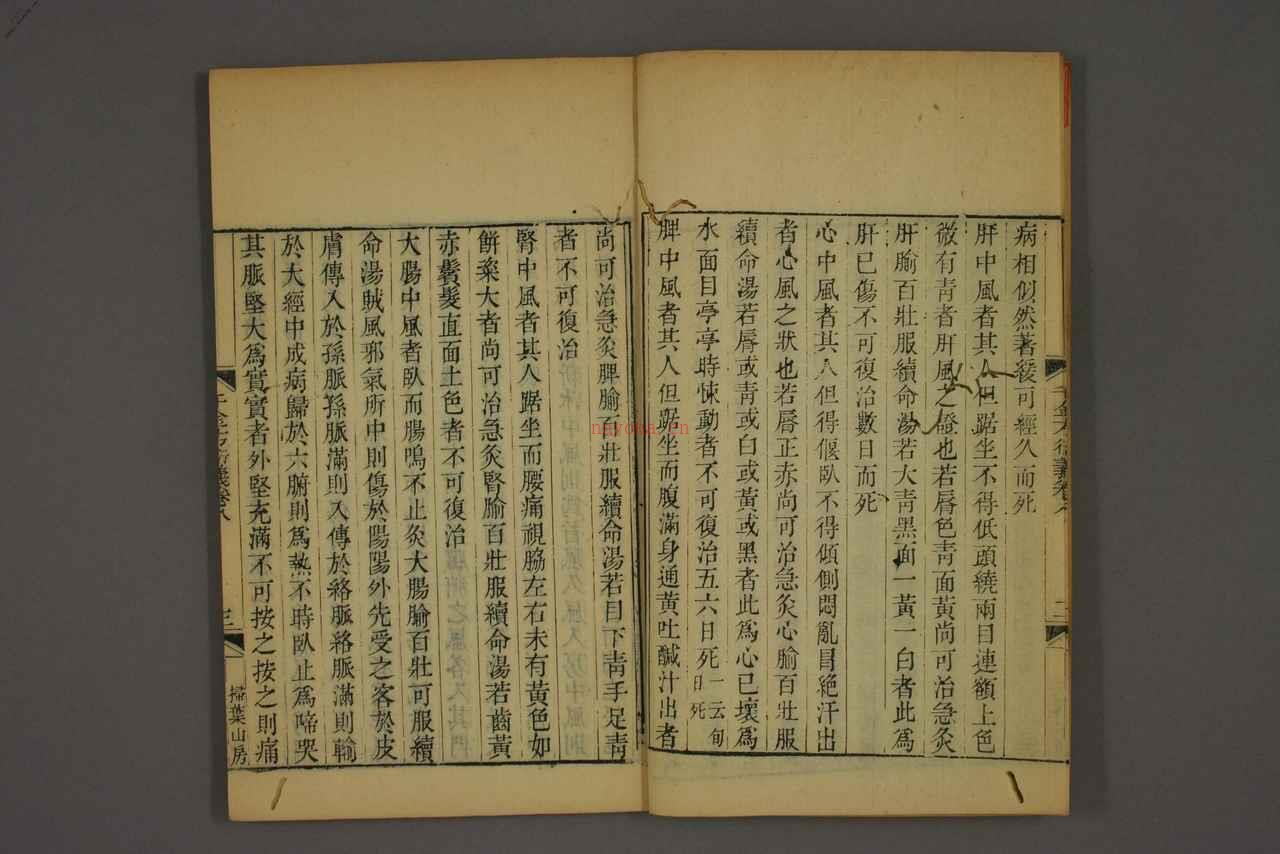 病相似然著緩可經久而死
肝中風者其人但踞坐不得低頭繞兩目連額上色
微有靑者肝風之證也若脣色靑面黃尚可治急灸
肝腧百壯服續命湯若大靑黑面一黃一白者此爲
肝已傷不可復治數日而死
心中風者其人但得偃臥不得傾側悶亂冒絶汗出
者心風之狀也若脣正赤尚可治急灸心腧百壯服
續命湯若脣或靑或白或黃或黑者此爲心已壞爲
水面目亭亭時悚動者不可復治五六日死一云旬日死
脾中風者其人但踞坐而腹滿身通黃吐鹹汁出者
尚可治急灸脾腧百壯服續命湯若目下靑手足靑
者不可復治
腎中風者其人踞坐而腰痛視脇左右未有黃色如
餅粢大者尚可治急灸腎腧百壯服續命湯若齒黃
赤鬢髮直面土色者不可復治
大腸中風者臥而腸鳴不止灸大腸腧百壯可服續
命湯賊風邪氣所中則傷於陽陽外先受之客於皮
膚傳入於孫脈孫脈滿則入傳於絡脈絡脈滿則輸
於大經中成病歸於六腑則爲熱不時臥止爲啼哭
其脈堅大爲實實者外堅充滿不可按之按之則痛
千金方衍義卷八
三
掃葉山房
千金方衍義卷八
二
nayona.cn